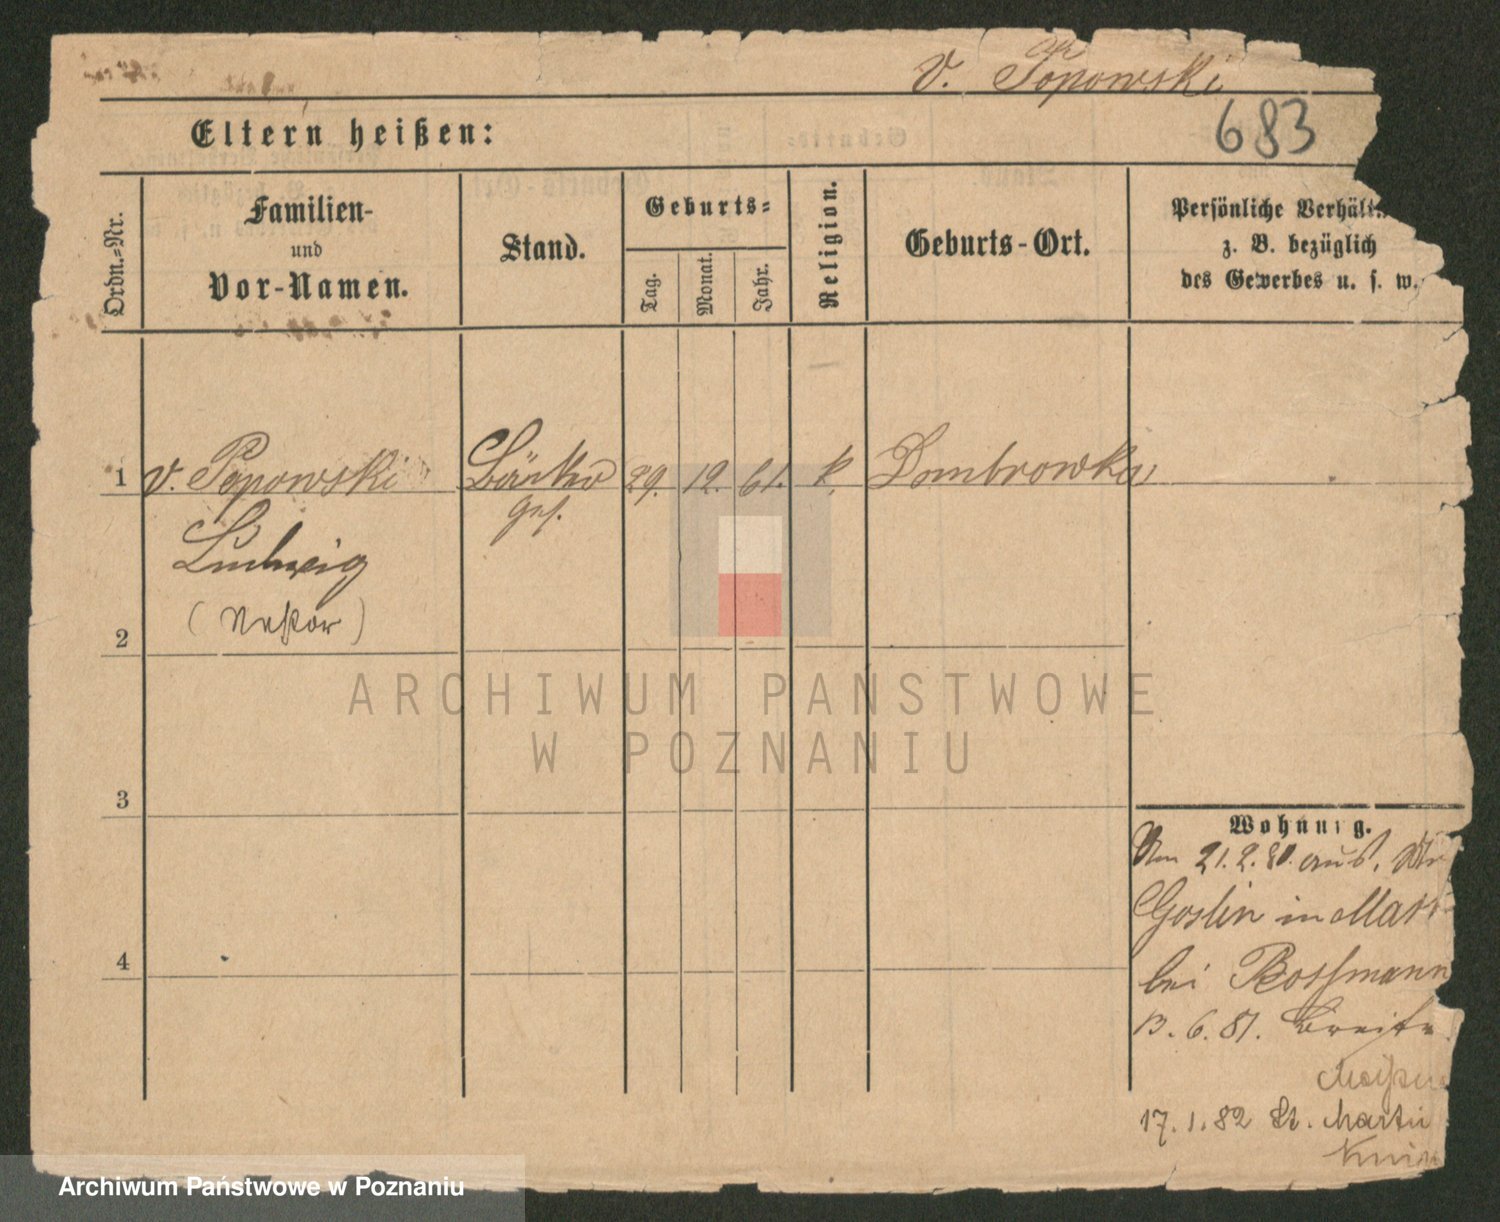 v. Popowski
683
Eltern heißen:
Ordn.-Nr.
Familien-
und
Vor-Namen.
Stand.
Geburts-
Tag.
Monat.
Jahr.
Religion.
Geburts-Ort.
Persönliche Verhält
z. B. bezüglich
des Gewerbes u. s. w.
1 v. Popowski 29. 12. 61. k. Dombrowka
ges.
Ludwig
2
3
4
Wohnung.
Am 21.2.80. aus
Goslin in Mar
bei Rossmann
13. 6. 81. Breite
17. 1. 82 St. Martin
ARCHIWUM PAŃSTWOWE
W POZNANIU
Archiwum Państwowe w Poznaniu